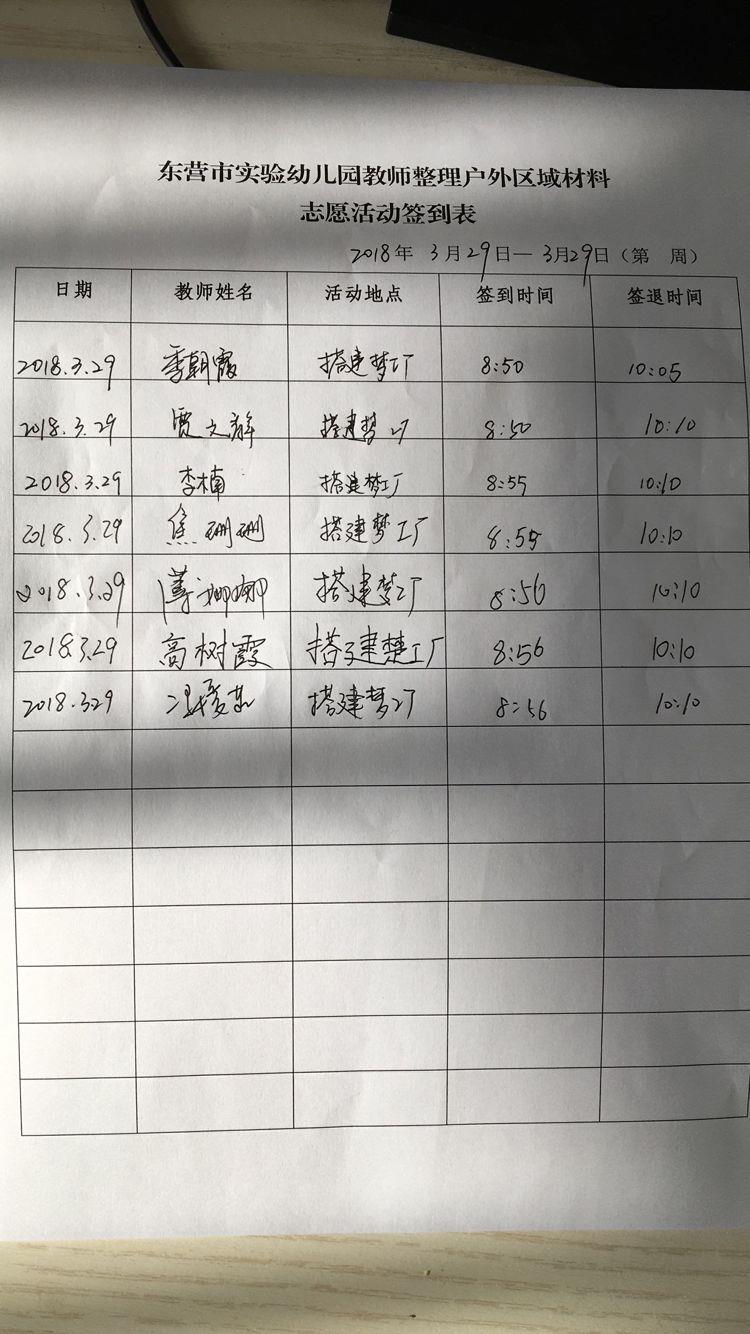 东营市实验幼儿园教师整理户外区域材料
志愿活动签到表
2018年 3月29日—3月29日（第 周）
日期 教师姓名 活动地点 签到时间 签退时间
2018.3.29 季朝霞 搭建梦工厂 8:50 10:05
2018.3.29 贾文静 搭建梦工厂 8:50 10:10
2018.3.29 李楠 搭建梦工厂 8:55 10:10
2018.3.29 焦珊珊 搭建梦工厂 8:55 10:10
2018.3.29 搭建梦工厂 8:56 10:10
2018.3.29 高树霞 搭建楚工厂 8:56 10:10
2018.3.29 搭建梦工厂 8:56 10:10